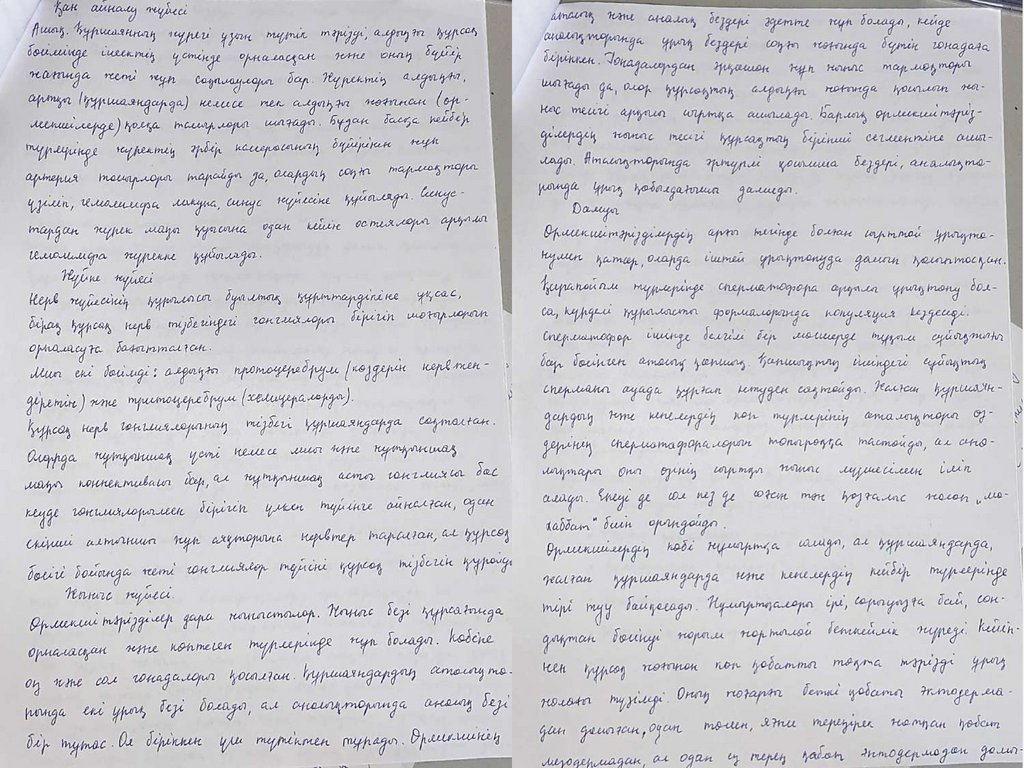 Қан айналу жүйесі
Ашық. Құршаянның жүрегі ұзын түтік тәрізді, алдыңғы құрсақ
бөлімінде ішектің үстінде орналасқан және оның бүйір
жағында жеті жұп саңылаулары бар. Жүректің алдыңғы,
артқы (құршаяндарда) немесе тек алдыңғы жағынан (өр-
мекшілерде) қолқа тамырлары шығады. Бұдан басқа кейбір
түрлерінде жүректің әрбір камерасының бүйірінен жұп
артерия тамырлары тарайды да, олардың соңғы тармақтары
үзіліп, гемолимфа лакуна, синус жүйесіне құйылады. Синус-
тардан жүрек маңы қуысына одан кейін остиялары арқылы
гемолимфа жүрекке құйылады.
Жүйке жүйесі
Нерв жүйесінің құрылысы буылтық құрттардікіне ұқсас,
бірақ құрсақ нерв тізбегіндегі ганглиялары бірігіп шоғырланып
орналасуға бағытталған.
Миы екі бөлімді: алдыңғы протоцеребрум (көздерін нервтен-
діретін) және тритоцеребрум (хелицераларды).
Құрсақ нерв ганглияларының тізбегі құршаяндарда сақталған.
Оларда жұтқыншақ үсті немесе миы және жұтқыншақ
маңы коннективасы бар, ал жұтқыншақ асты ганглиясы бас
кеуде ганглияларымен бірігіп үлкен түйінге айналған, одан
екінші алтыншы жұп аяқтарына нервтер таралған, ал құрсақ
бөлігі бойында жеті ганглиялар түйіні құрсақ тізбегін құрайды
Жыныс жүйесі.
Өрмекші тәрізділер дара жыныстылар. Жыныс безі құрсағында
орналасқан және көптеген түрлерінде жұп болады. Көбіне
оң және сол гонадалары қосылған. Құршаяндардың аталықта-
рында екі ұрық безі болады, ал аналықтарында аналық безі
бір тұтас. Ол біріккен үш түтіктен тұрады. Өрмекшінің
аталық және аналық бездері әдетте жұп болады, кейде
аналықтарында ұрық бездері соңғы жағында бүтін гонадаға
біріккен. Гонадалардан әрқашан жұп жыныс тармақтары
шығады да, олар құрсақтың алдыңғы жағында қосылып жы-
ныс тесігі арқылы сыртқа ашылады. Барлық өрмекшітәріз-
ділердің жыныс тесігі құрсақтың бірінші сегментіне ашы-
лады. Аталықтарында әртүрлі қосымша бездері, аналықта-
рында ұрық қабылдағышы дамиды.
Дамуы
Өрмекшітәрізділердің арғы тегінде болған сырттай ұрықта-
нумен қатар, оларда іштей ұрықтануда дамып қалыптасқан.
Қарапайым түрлерінде сперматофора арқылы ұрықтану бол-
са, күрделі құрылысты формаларында копуляция кездеседі.
Сперматофор ішінде белгілі бір мөлшерде тұқым сұйықтығы
бар бөлінген аталық қапшық. Қапшықтың ішіндегі сұйықтық
сперманы ауада құрғап кетуден сақтайды. Жалған құршаян-
дардың және кенелердің көп түрлерінің аталықтары өз-
дерінің сперматафораларын топыраққа тастайды, ал ана-
лықтары оны өзінің сыртқы жыныс мүшесімен іліп
алады. Екеуі де сол кезде өзіне тән қозғалыс жасап „ма-
хаббат“ биін орындайды.
Өрмекшілердің көбі жұмыртқа салады, ал құршаяндарда,
жалған құршаяндарда және кенелердің кейбір түрлерінде
тірі туу байқалады. Жұмыртқалары ірі, сарыуызға бай, сон-
дықтан бөлінуі жарым жартылай беткейлік жүреді. Кейін-
нен құрсақ жағынан көп қабатты тақта тәрізді ұрық
жолағы түзіледі. Оның жоғарғы беткі қабаты эктодерма-
дан дамыған, одан төмен, яғни тереңірек жатқан қабат
мезодермадан, ал одан ең терең қабат энтодермадан дамы-